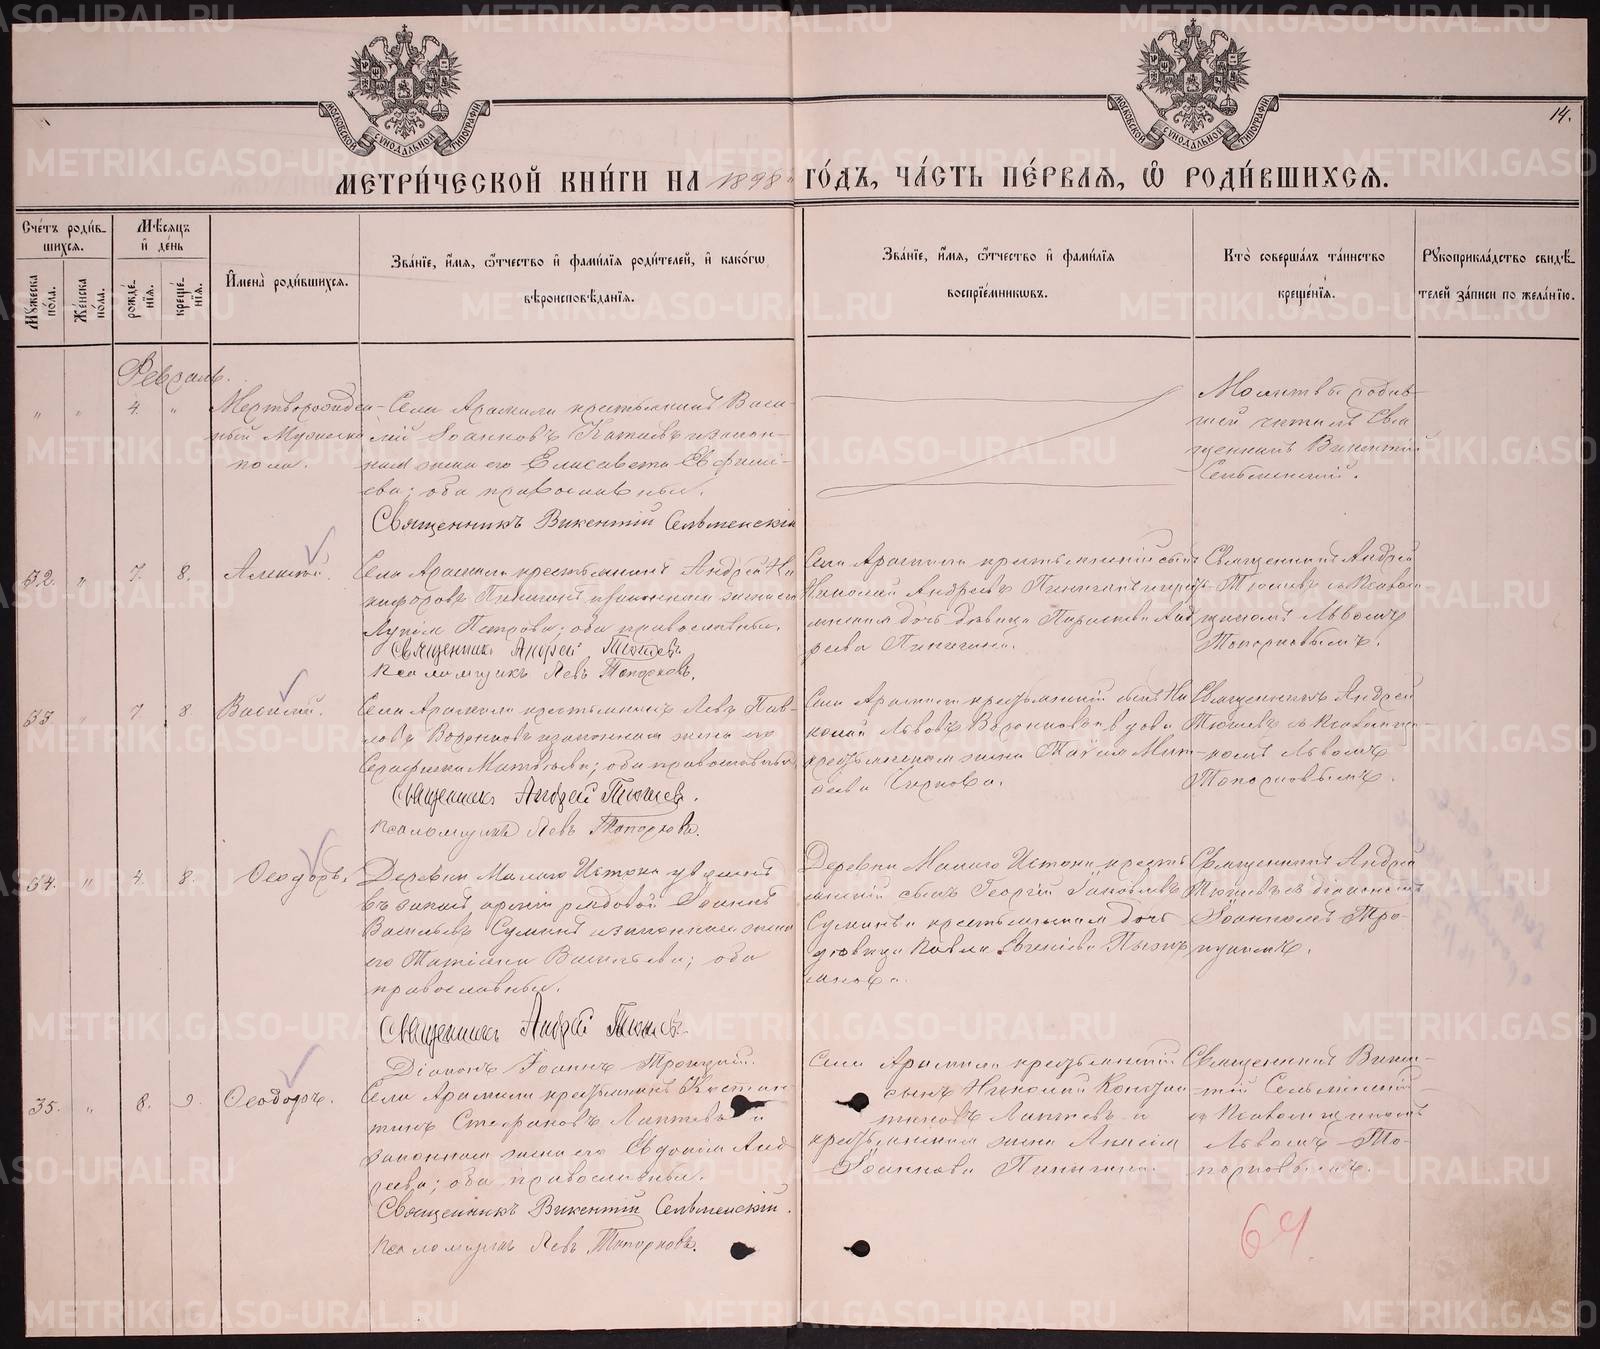 МОСКОВСКОЙ СѴНОДАЛЬНОЙ ТИПОГРАФІИ
МОСКОВСКОЙ СѴНОДАЛЬНОЙ ТИПОГРАФІИ
14.
МЕТРИ́ЧЕСКОЙ КНИ́ГИ НА 1898 ГО́ДЪ, ЧА́СТЬ ПЕ́РВАЯ, Ѽ РОДИ́ВШИХСЯ.
Сче́тъ роди́в-
шихся.
Мужеска по́ла.
Же́нска по́ла.
Мѣ́сяцъ
и҆ де́нь
рожде́-
нїя.
креще́-
нїя.
И҆мена̀ роди́вшихся.
Зва́нїе, и҆́мя, ѻ҆́тчество и҆ фами́лїя роди́телей, и҆ како́гѡ
вѣроисповѣ́данїя.
Зва́нїе, и҆́мя, ѻ҆́тчество и҆ фами́лїя
воспрїе́мниковъ.
Кто̀ соверша́лъ та́инство
креще́нїя.
Рукоприкла́дство свидѣ́-
телей за́писи по жела́нїю.
Февраль.
" " 4. "
Мертворожден-
ный Мужеска
пола.
Села Арамили крестьянинъ Васи-
лій Іоанновъ Катаевъ и закон-
ная жена его Елисавета
ева; оба православные.
Священникъ Викентій Сельменскій
Молитвы родив-
шей читалъ Свя
щенникъ Викентій
Сельменскій.
32. " 7. 8.
Алексій.
Села Арамили крестьянинъ Андрей Ни
кифоровъ Пинигинъ и законная жена его
Петрова; оба православные.
Священникъ Андрей
Псаломщикъ Левъ Топорковъ.
Села Арамили крестьянскій сынъ
Николай Андреевъ Пинигинъ и крестья
янская дочь девица Параскева Анд
реева Пинигина.
Священникъ Андрей
съ Псалом
щикомъ Львомъ
Топорковымъ.
33 " 7 8.
Василій.
Села Арамили крестьянинъ Левъ Пав-
ловъ Воронковъ и законная жена его
Серафима Матвеева; оба православные
Священникъ Андрей
Псаломщикъ Левъ Топорковъ.
Села Арамили крестьянскій сынъ Ни
колай Львовъ Воронковъ и вдова
крестьянская жена
Священникъ Андрей
съ Псаломщи-
комъ Львомъ
Топорковымъ.
34. " 4. 8.
Ѳеодоръ.
Деревни Малаго Истока уволенный
въ запасъ арміи рядовой Іоаннъ
Васильевъ Суминъ и законная жена
его Татіана Васильева; оба
православные.
Священникъ Андрей
Діаконъ Іоаннъ Троицкій.
Деревни Малаго Истока крестья
янскій сынъ Георгій Іаковлевъ
Суминъ и крестьянская дочь
девица Павла
Священникъ Андрей
съ діакономъ
Іоанномъ Тро-
ицкимъ.
35. " 8. 9.
Ѳеодоръ.
Села Арамили крестьянинъ Констан
тинъ Стефановъ Лаптевъ и
законная жена его Евдокія Анд
реева; оба православные.
Священникъ Викентій Сельменскій.
Псаломщикъ Левъ Топорковъ.
Села Арамили крестьянскій
сынъ Николай Констан
тиновъ Лаптевъ и
крестьянская жена Анисія
Іоаннова Пинигина.
Священникъ Викен-
тій Сельменскій
съ Псаломщикомъ
Львомъ То-
порковымъ.